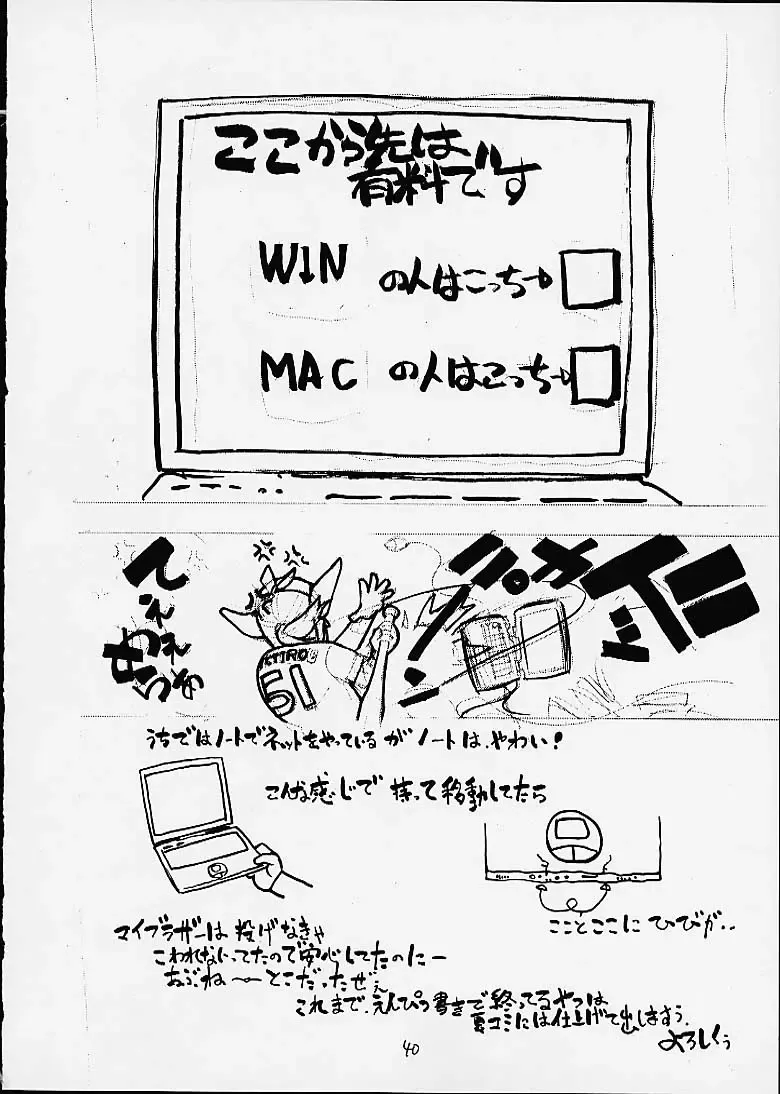 ここから先は
有料です
WINの人はこっち→
MACの人はこっち→
てぇ
カッ
パ
ー!
51
うちではノートでネットをやっているがノートは、やわい!
こんな感じで持って移動してたら
こことここにひびが‥
マイブラザーは投げなきゃ
こわれないってたので安心してたのにー
あぶね〜とこだったぜぇ
これまで、えんぴつ書きで終ってるやつは
夏コミには仕上げて出しますぅ.
よろしくぅ
40